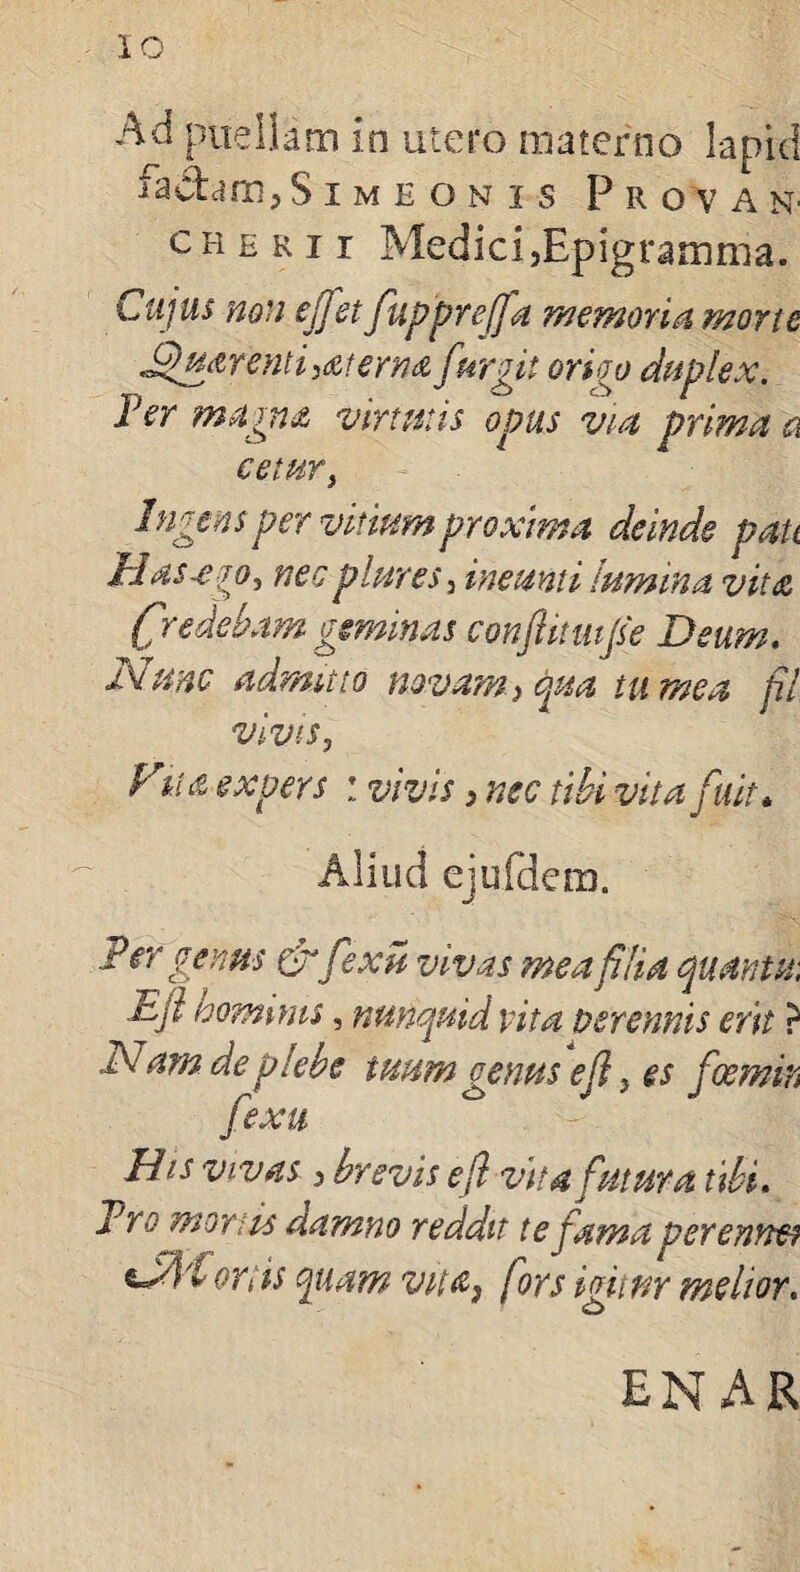 10
Ad puellam in utero materno lapid
factam, SIMEONIS PROVAN-
CHERII Medici, Epigramma.
Cujus non eſſet ſuppreſſa memoria morte
Quærenti, æternæ ſurgit origo duplex.
Per magnæ virtutis opus via prima a
cetur,
Ingens per vitium proxima deinde pate
Has ego, nec plures, ineunti lumina vitæ
Credebam geminas conſtituiſſe Deum.
Nunc admitto novam, qua tu mea fil
vivis,
Vitæ expers : vivis, nec tibi vita fuit.
Aliud ejuſdem.
Per genus & ſexū vivas mea filia quantu
Eſt hominis, nunquid vita perennis erit ?
Nam de plebe tuum genus eſt, es fœmin
ſexu
His vivas, brevis eſt vita futura tibi.
Pro mortis damno reddit te fama perenne
Mortis quam vitæ, ſors igitur melior.
ENAR